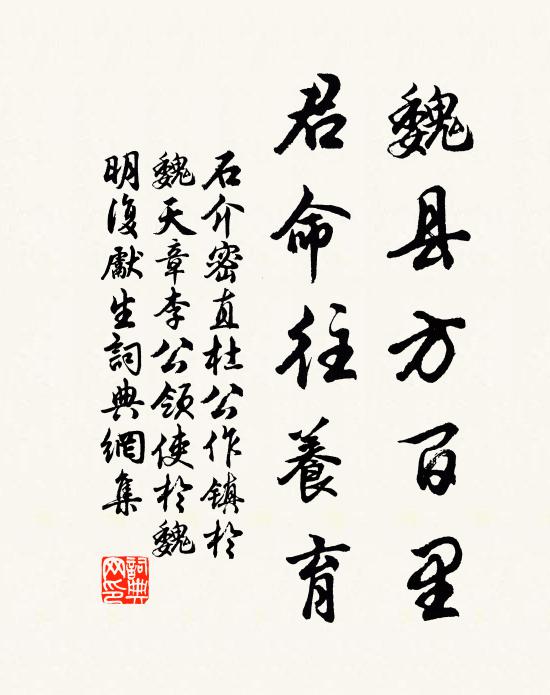 魏县方百里
君命往養育
石介密直杜公作镇於
魏天章李公领使於魏
明復獻生詞典網集
詞典网印